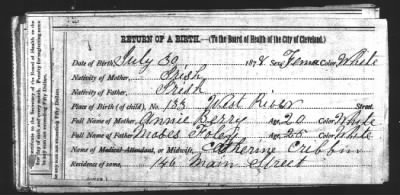 RETURN OF A BIRTH.—(To the Board of Health of the City of Cleveland.)
Date of Birth, July 30, 1878 Sex, Fema Color, White
Nativity of Mother, Irish
Nativity of Father, Irish
Place of Birth (of child), No. 133 West River Street.
Full Name of Mother, Annie Berry Age, 20 Color, White
Full Name of Father, Foley Age, 25 Color, White
Name of Medical Attendant, or Midwife, Catherine Cribbin
Residence of same, 146 Main Street